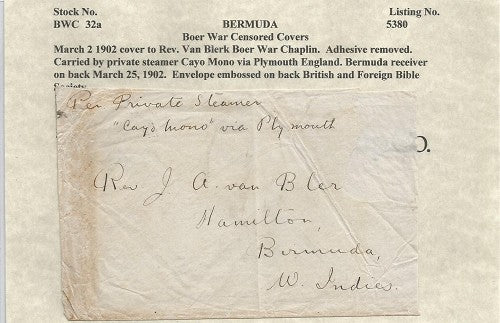 Stock No.
BERMUDA
Listing No.
BWC 32a
5380
Boer War Censored Covers
March 2 1902 cover to Rev. Van Blerk Boer War Chaplin. Adhesive removed.
Carried by private steamer Cayo Mono via Plymouth England. Bermuda receiver
on back March 25, 1902. Envelope embossed on back British and Foreign Bible
Society
Per Private Steamer
"Cayo Mono" via Plymouth
O.
Rev J. A. van Bler
Hamilton,
Bermuda,
W. Indies.